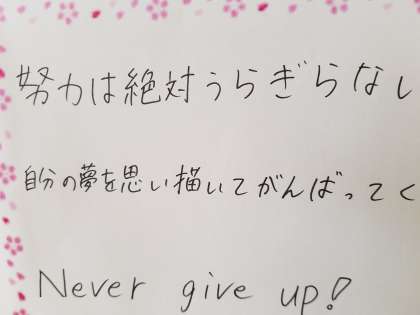 努力は絶対うらぎらなし
自分の夢を思い描いてがんばってく
Never give up!